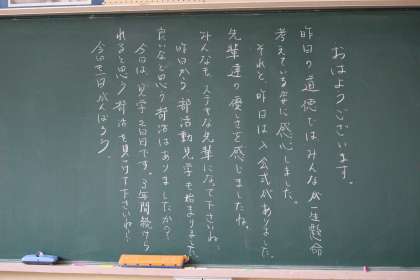 おはようございます。
昨日の道徳ではみんなが一生懸命
考えている姿に感心しました。
それと昨日は入会式がありました。
先輩達の優しさを感じましたね。
みんなもステキな先輩になって下さいね。
昨日から部活動見学も始まりました。
良いなと思う部活はありましたか?
今日は、見学2日目です。3年間続けら
れると思う部活を見つけて下さいね!
今日も一日がんばろう。